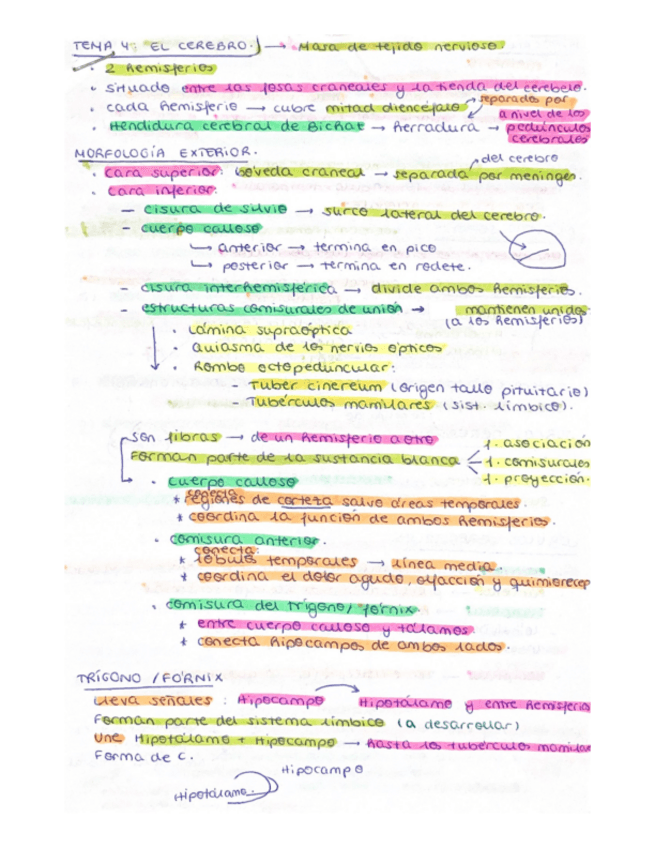 TEMA 4: EL CEREBRO. → Masa de tejido nervioso.
· 2 Hemisferios
· Situado entre las fosas craneales y la tienda del cerebelo.
· cada Hemisferio → cubre mitad diencéfalo separados por
· Hendidura cerebral de Bichat → Herradura → a nivel de los pedúnculos cerebrales
MORFOLOGÍA EXTERIOR.
· cara superior: bóveda craneal → separada por meninges. del cerebro
· cara inferior:
– cisura de silvio → surco lateral del cerebro.
– cuerpo calloso
↳ anterior → termina en pico
↳ posterior → termina en rodete.
– cisura interHemisférica → divide ambos Hemisferios.
– estructuras comisurales de unión → mantienen unidos (a los Hemisferios)
· Lámina supraóptica
· Quiasma de los nervios ópticos
· Rombo optopeduncular:
– Tuber cinereum (origen tallo pituitario)
– Tubérculos mamilares (sist. límbico).
son fibras → de un Hemisferio a otro
Forman parte de la sustancia blanca
f. asociación
f. comisurales
f. proyección.
· cuerpo calloso
conecta:
* regiones de corteza salvo áreas temporales.
* coordina la función de ambos Hemisferios.
· comisura anterior.
conecta:
* lóbulos temporales → línea media.
* coordina el dolor agudo, olfacción y quimiorecep
· comisura del trígono/fórnix
* entre cuerpo calloso y tálamos.
* conecta Hipocampos de ambos lados.
TRÍGONO / FÓRNIX
Lleva señales: Hipocampo → Hipotálamo y entre Hemisferio
Forman parte del sistema límbico (a desarrollar)
Une Hipotálamo + Hipocampo → hasta los tubérculos mamilar
Forma de C.
Hipocampo
Hipotálamo.